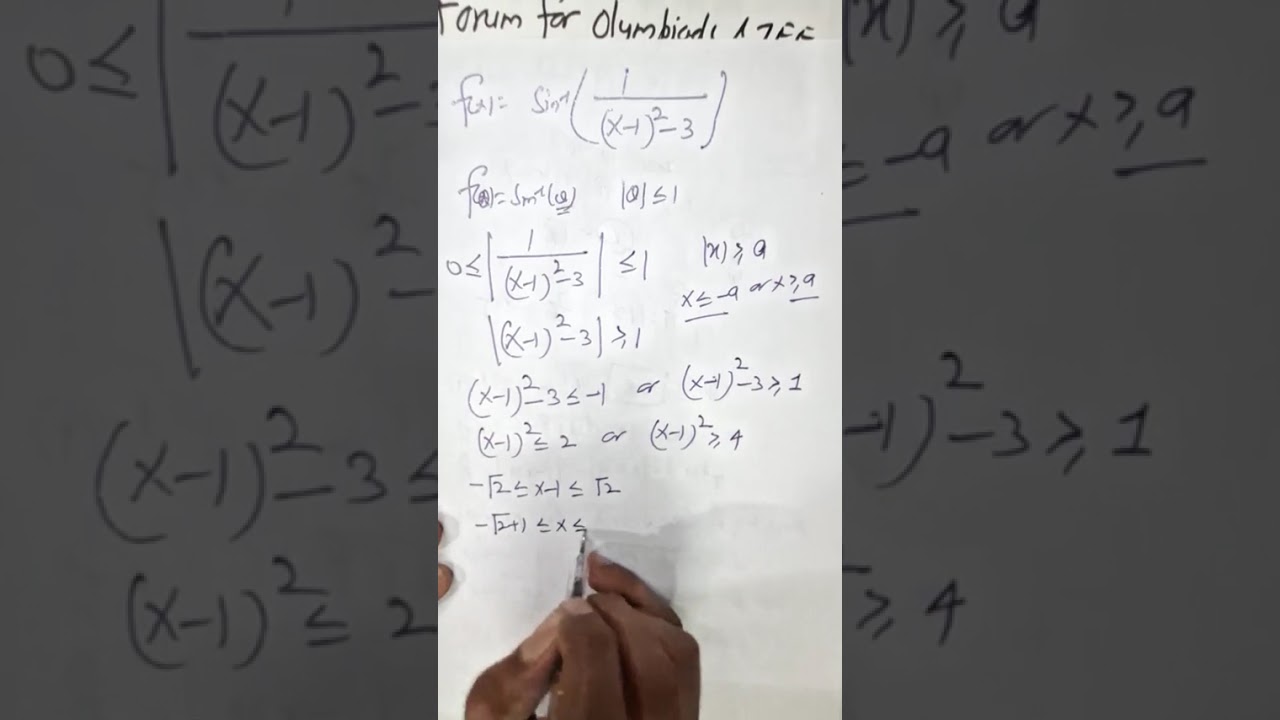 Forum for Olymbiads & JEE
f(x) = Sin⁻¹(1/((x-1)²-3))
f(θ) = Sin⁻¹(θ) |θ| ≤ 1
0 ≤ |1/((x-1)²-3)| ≤ 1 |x| ≥ a
x ≤ -a or x ≥ a
|(x-1)²-3| ≥ 1
(x-1)²-3 ≤ -1 or (x-1)²-3 ≥ 1
(x-1)² ≤ 2 or (x-1)² ≥ 4
-√2 ≤ x-1 ≤ √2
-√2+1 ≤ x ≤